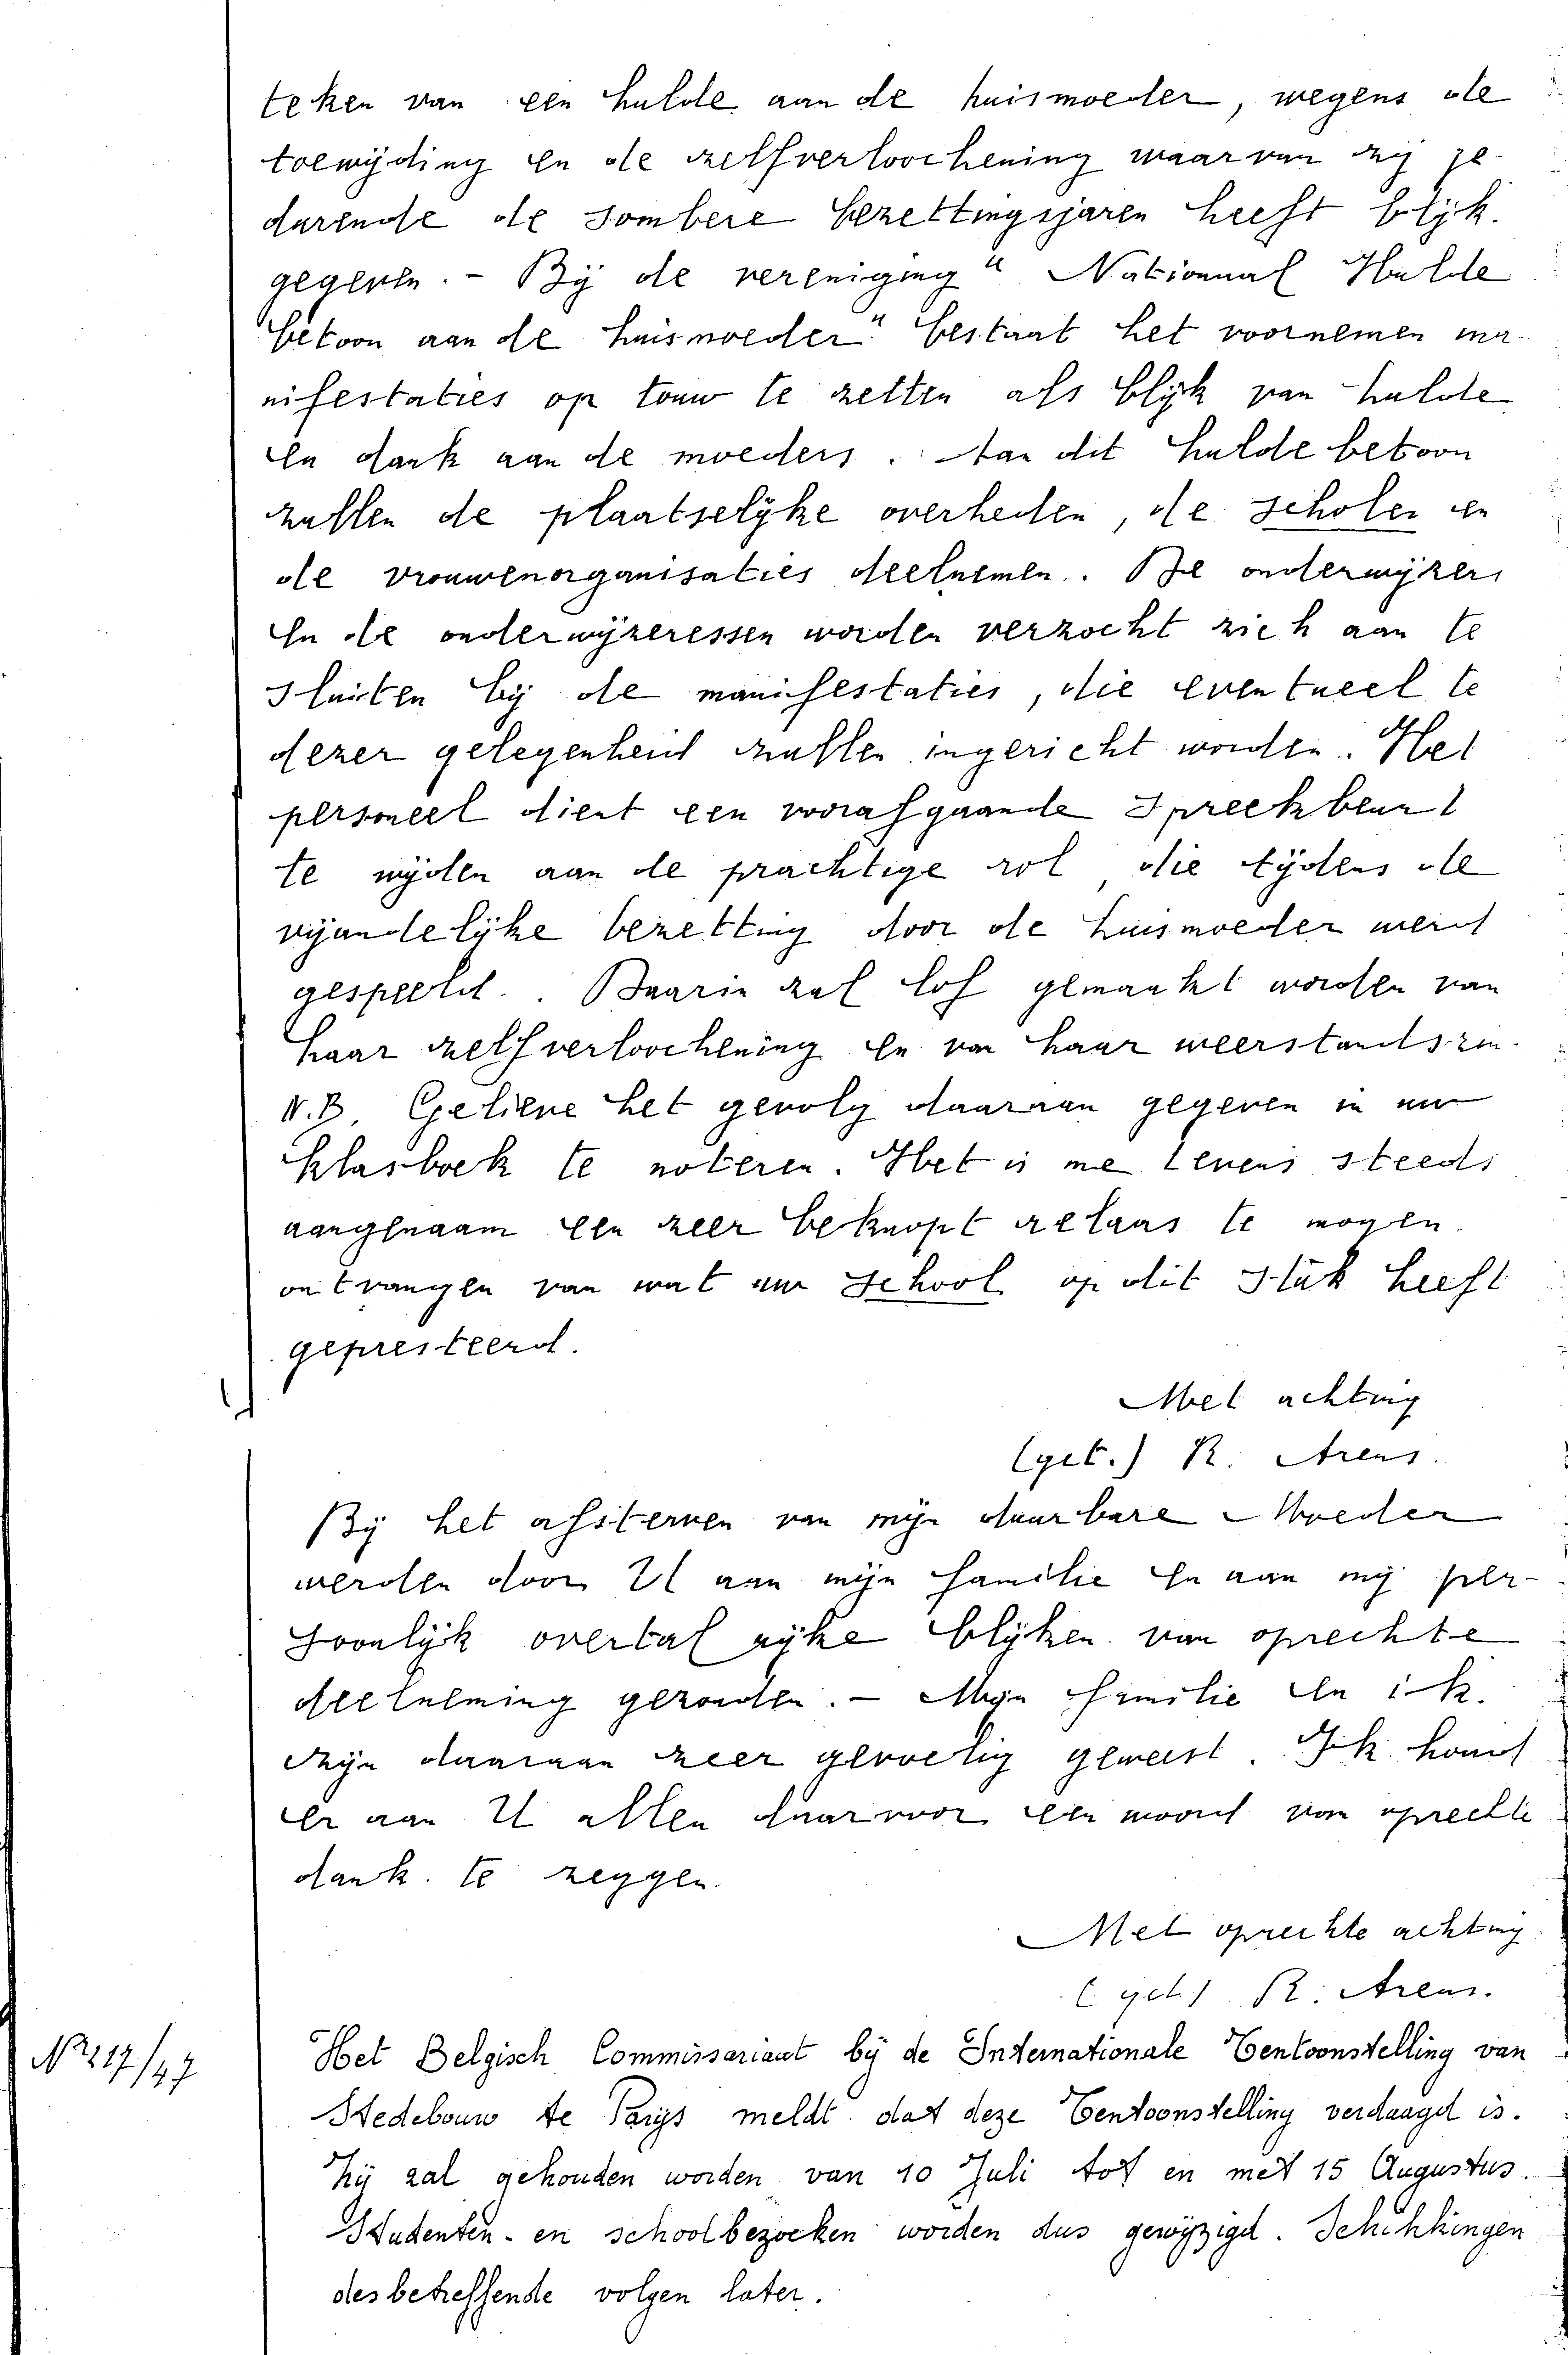 teken van een hulde aan de huismoeder, wegens de
toewijding en de zelfverloochening waarvan zij ge-
durende de sombere bezettingsjaren heeft blijk
gegeven. - Bij de vereniging "Nationaal Hulde
betoon aan de huismoeder" bestaat het voornemen ma-
nifestaties op touw te zetten als blijk van hulde
en dank aan de moeders. Aan dit hulde betoon
zullen de plaatselijke overheden, de scholen en
de vrouwenorganisaties deelnemen. De onderwijzers
en de onderwijzeressen worden verzocht zich aan te
sluiten bij de manifestaties, die eventueel te
dezer gelegenheid zullen ingericht worden. Het
personeel dient een voorafgaande spreekbeurt
te wijden aan de prachtige rol, die tijdens de
vijandelijke bezetting door de huismoeder werd
gespeeld. Daarin zal lof gemaakt worden van
haar zelfverloochening en van haar weerstandszin.
N.B. Gelieve het gevolg daaraan gegeven in uw
klasboek te noteren. Het is me tevens steeds
aangenaam een zeer beknopt relaas te mogen
ontvangen van wat uw school op dit stuk heeft
gepresteerd.
Met achting
(get.) R. Arens.
Bij het afsterven van mijn duurbare Moeder
werden door U aan mijn familie en aan mij per-
soonlijk overtalrijke blijken van oprechte
deelneming gezonden. - Mijn familie en ik
zijn daaraan zeer gevoelig geweest. Ik houd
er aan U allen daarvoor een woord van oprechte
dank te zeggen.
Met oprechte achting
(get.) R. Arens.
No 217/47
Het Belgisch Commissariaat bij de Internationale Tentoonstelling van
Stedebouw te Parijs meldt dat deze Tentoonstelling verdaagd is.
Zij zal gehouden worden van 10 Juli tot en met 15 Augustus.
Studenten- en schoolbezoeken worden dus gewijzigd. Schikkingen
desbetreffende volgen later.